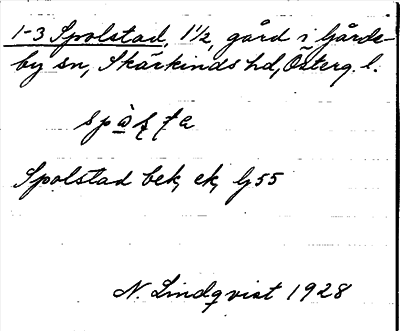 1-3 Spolstad, 1 1/2, gård i Gårde-
by sn, Skärkinds hd, Österg. l.
Spolstad bek, ek, Gj 55
N. Lindqvist 1928